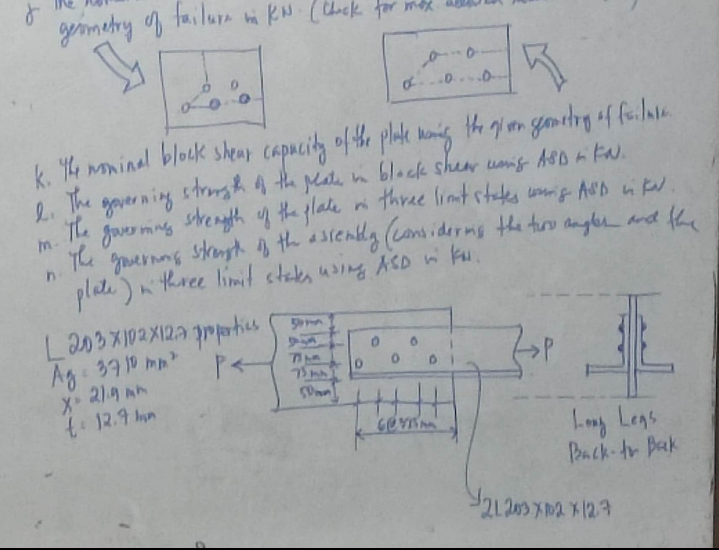 geometry of failure in KN. (Check for max
k. The nominal block shear capacity of the plate using the given geometry of failure.
l. The governing strength of the plate in block shear using ASD in KN.
m. The governing strength of the plate in three limit states using ASD in KN.
n. The governing strength of the assembly (considering the two angles and the
plate) in three limit states using ASD in KN.
L 203 X102 X12.7 properties
Ag = 3710 mm²
X = 21.9 mm
t = 12.7 mm
P
50mm
75mm
75mm
50mm
P
Long Legs
Back-to Back
2L 203 X 102 X 12.7